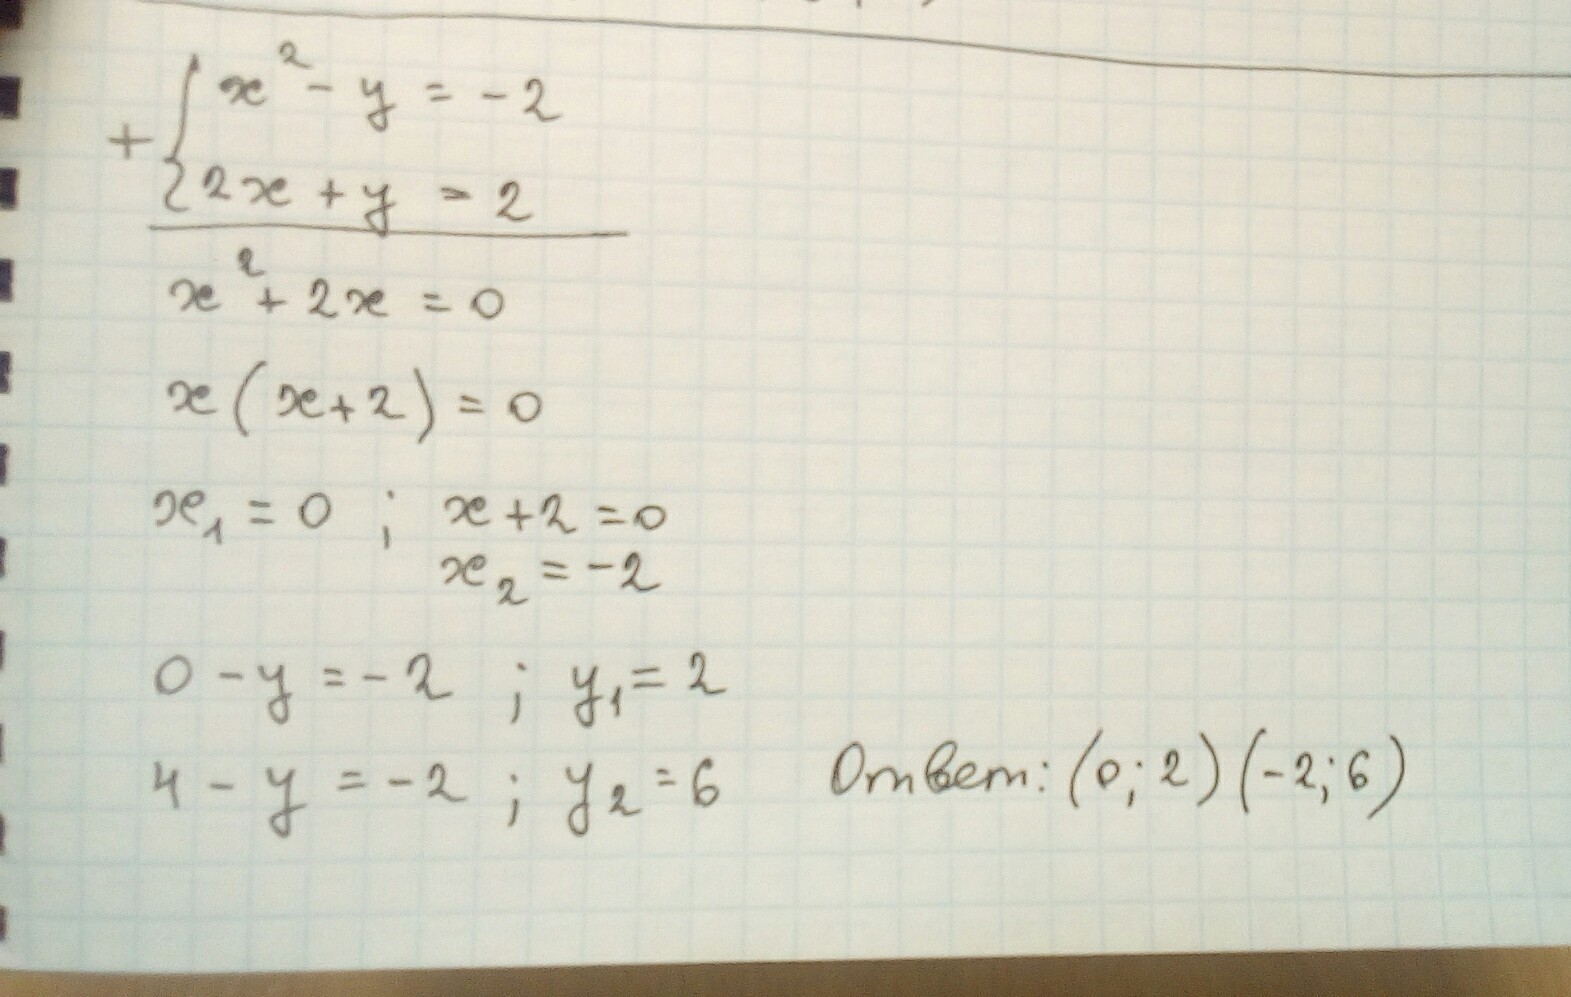 x² - y = -2
+
2x + y = 2
x² + 2x = 0
x(x+2) = 0
x₁ = 0 ; x+2 = 0
x₂ = -2
0 - y = -2 ; y₁ = 2
4 - y = -2 ; y₂ = 6 Ответ: (0; 2) (-2; 6)